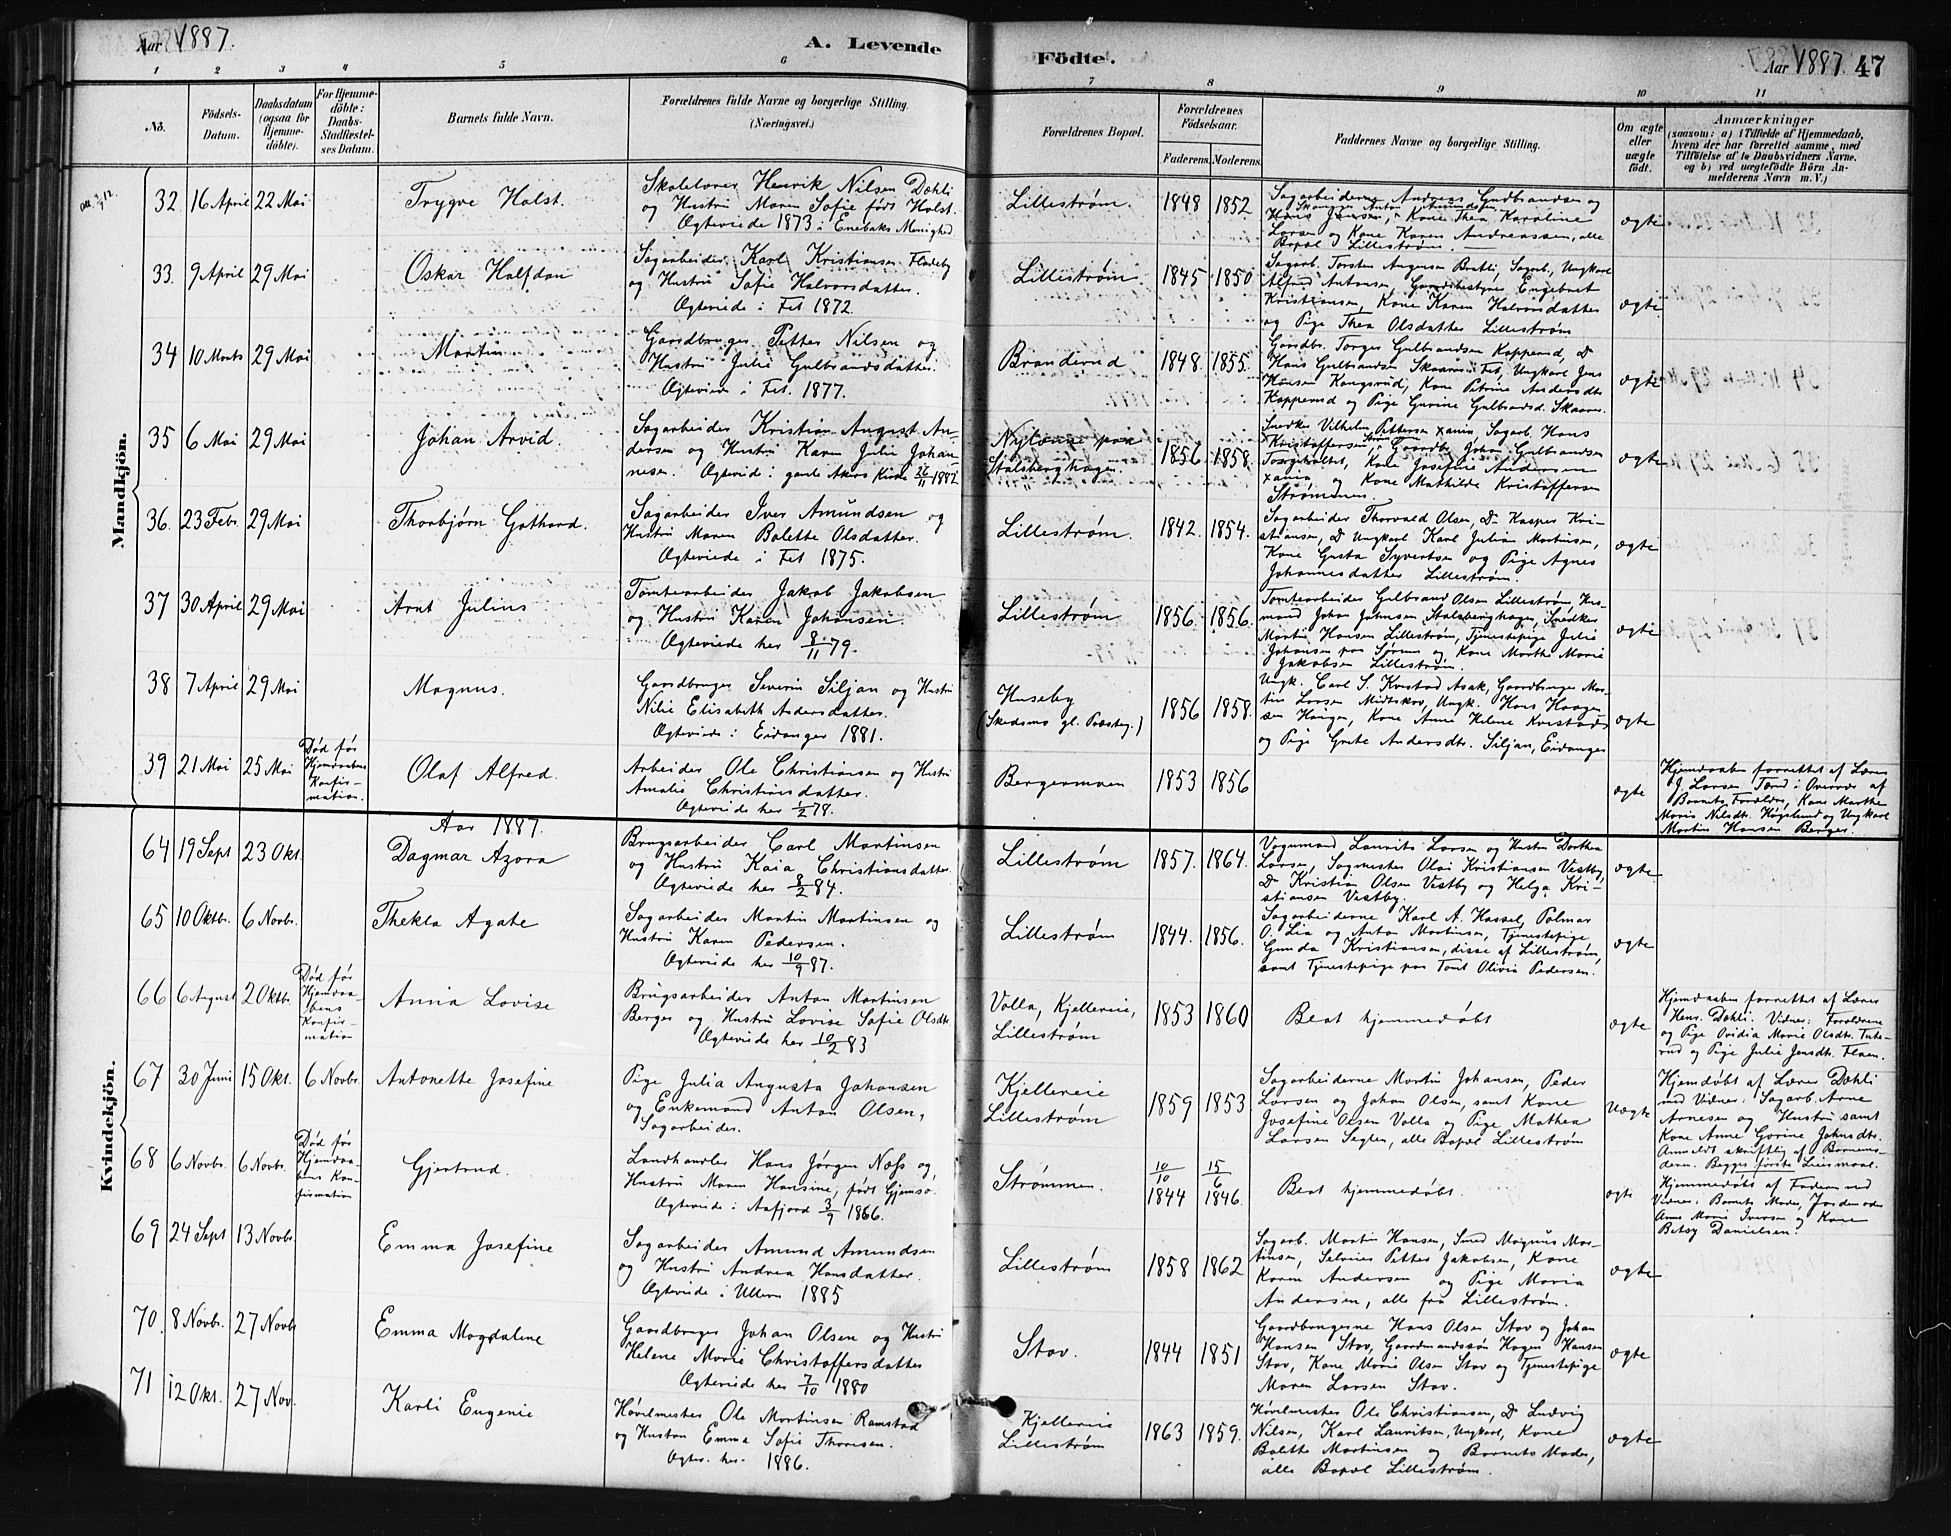 Aar 1887.
A. Levende
Födte.
Aar 1887. 47
1 2 3 4 5 6 7 8 9 10 11
No.
Födsels-
Datum.
Daabsdatum
(ogsaa for
Hjemme-
döbte).
For Hjemme-
döbte:
Daabs-
Stadfæstel-
ses Datum.
Barnets fulde Navn.
Forældrenes fulde Navne og borgerlige Stilling.
(Næringsvei.)
Forældrenes Bopæl.
Forældrenes
Födselsaar.
Faderens. Moderens.
Faddernes Navne og borgerlige Stilling.
Om ægte
eller
uægte
födt.
Anmærkninger
(saasom: a) i Tilfælde af Hjemmedaab,
hvem der har forrettet samme, med
Tilföielse af to Daabsvidners Navne,
og b) ved uægtefödte Börn An-
melderens Navn m. V.)
Mandkjön.
32. 16 April 22 Mai
Trygve Holst.
Skolelærer Henrik Nilsen Døhli
og Hustru Maren Sofie født Holst.
Ægteviede 1873 i Enebaks Menighed.
Lillestrøm. 1848 1852
Sagarbeiderne Andreas Gudbrandsen og
Hans Jensen, Kone Thea Karoline
Larsen og Kone Karen Andreassen, alle
Bopæl Lillestrøm.
ægte
33. 9 April 29 Mai
Oskar Halfdan
Sagarbeider Karl Kristiansen Fladeby
og Hustru Sofie Halvorsdatter.
Ægteviede i Fet 1872.
Lillestrøm 1845 1850
Sagarb. Torsten Angensen Bratli, Sagarb., Ungkarl
Alfred Antonsen, Gaardbestyrer Engebret
Kristiansen, Kone Karen Halvorsdatter
og Pige Thea Olsdatter Lillestrøm
ægte
34 10 Marts 29 Mai
Martin
Gaardbruger Petter Nilsen og
Hustru Julie Gulbrandsdatter.
Ægteviede i Fet. 1877.
Branderud 1848. 1855.
Gaardbr. Torger Gulbrandsen Kopperud, Do
Hans Gulbrandsen Skaarer i Fet, Ungkarl Jens
Hansen Kongsrud, Kone Petrine Andersdtr
Kopperud og Pige Gurine Gulbrandsd. Skaarer.
ægte
35 6 Mai 29 Mai
Johan Arvid.
Sagarbeider Kristian August An-
dersen og Hustru Karen Julie Johan-
nesen. Ægteviede i gamle Akers Kirke 26/11 1882
Nylænde paa
Stalsberghagen. 1856 1858.
Snedker Vilhelm Pettersen Xania, Sagarb. Hans
Kristoffersen, Gaardbr. Johan Gulbrandsen
Torgeholtet, Kone Josefine Andersen
Xania og Kone Mathilde Kristoffersen
Strømmen.
ægte
36. 23 Febr. 29 Mai
Thorbjørn Gothard.
Sagarbeider Iver Amundsen og
Hustru Maren Bolette Olsdatter.
Ægteviede i Fet 1875.
Lillestrøm. 1842. 1854.
Sagarbeider Thorvald Olsen, Do Kasper Kri-
stiansen, Do Ungkarl Karl Julian Martinsen,
Kone Gusta Syvertsen og Pige Agnes
Johannesdatter Lillestrøm.
ægte
37 30 April 29 Mai
Arnt Julius
Tomtearbeider Jakob Jakobsen
og Hustru Karen Johansen.
Ægteviede her 8/11 79.
Lillestrøm 1856. 1856.
Tomtearbeider Gulbrand Olsen Lillestrøm Hus-
mand Johan Johnsen Stalsberghagen, Snedker
Martin Hansen Lillestrøm, Tjenestepige Julie
Johansen paa Sørum og Kone Marthe Marie
Jakobsen Lillestrøm.
ægte
38 7 April 29 Mai
Magnus.
Gaardbruger Severin Siljan og Hustru
Nilie Elisabeth Andersdatter.
Ægteviede i Eidanger 1881.
Huseby
(Skedsmo gl. Præsteg.) 1856 1858.
Ungk. Carl S. Kvestad Asak, Gaardbruger Mar-
tin Larsen Midtskov, Ungk. Hans Haagen-
sen Hauger, Kone Anne Helene Kvestad
og Pige Grete Andersdtr. Siljan, Eidanger
ægte
39 21 Mai 25 Mai
Død før
Hjemdaabens
Konfir-
mation.
Olaf Alfred.
Arbeider Ole Christiansen og Hustru
Amalie Christiansdatter.
Ægteviede her 1/2 78.
Bergermoen 1853 1856
ægte
Hjemdaaben forrettet af Lærer
J. Larsen Tønd i Overvær af
Barnets Forældre, Kone Marthe
Marie Nilsdtr. Høgelund og Ungkarl
Martin Hansen Berger.
Kvindekjön.
Aar 1887.
64 19 Sept 23 Okt.
Dagmar Azora
Brugsarbeider Carl Martinsen
og Hustru Kaia Christiansdatter.
Ægteviede her 8/2 84.
Lillestrøm 1857. 1864.
Vognmand Laurits Larsen og Hustru Dorthea
Larsen, Sagmester Olai Kristiansen Vestby,
Do Kristian Olsen Vestby og Helga Kri-
stiansen Vestby.
ægte.
65 10 Oktbr. 6 Novbr.
Thekla Agate
Sagarbeider Martin Martinsen og
Hustru Karen Pedersen.
Ægteviede her 10/9 87.
Lillestrøm 1844. 1856.
Sagarbeiderne Karl A. Hassel, Palmar
O. Lia og Anton Martinsen, Tjenestepige
Gunda Kristiansen, disse af Lillestrøm,
samt Tjenestepige paa Tomt Olivia Pedersen.
ægte
66 6 August 2 Oktbr.
Død før
Hjemdaa-
bens
Konfir-
mation
Anna Lovise
Brugsarbeider Anton Martinsen
Berger og Hustru Lovise Sofie Olsdtr.
Ægteviede her 10/2 83
Volla, Kjellereie,
Lillestrøm 1853 1860
Blot hjemmedøbt
ægte
Hjemdaaben forrettet af Lærer
Henr. Døhli. Vidner: Forældrene
og Pige Ovidia Marie Olsdtr. Tuts-
rud og Pige Julie Jensdtr. Flaen.
67 30 Juni 15 Okt. 6 Novbr.
Antonette Josefine
Pige Julia Augusta Johansen
og Enkemand Anton Olsen,
Sagarbeider.
Kjellereie
Lillestrøm 1859 1853
Sagarbeiderne Martin Johansen, Peder
Larsen og Johan Olsen, samt Kone
Josefine Olsen Volla og Pige Mathea
Larsen Seglen, alle Bopæl Lillestrøm
Uægte
Hjemdøbt af Lærer Døhli
med Vidner: Sagarb. Arne
Arnesen og Hustru samt
Kone Anne Gorine Johnsdtr.
Anmeldt skriftlig af Barnemo-
deren. Begges første Leiermaal.
68 6 Novbr. 6 Novbr.
Død før
Hjemdaa-
bens Kon-
firmation
Gjertrud.
Landhandler Hans Jørgen Næss og
Hustru Maren Hansine, født Gjemsø.
Ægteviede i Aafjord 3/9 1866.
Strømmen. 10/10 1844 15/6 1846.
Blot hjemmedøbt.
ægte
Hjemmedøbt af Faderen med
Vidner: Barnets Moder, Jordemoder
Anne Marie Iversen og Kone
Betsy Danielsen.
69 24 Sept 13 Novbr.
Emma Josefine
Sagarbeider Amund Amundsen
og Hustru Andrea Hansdatter.
Ægteviede i Ullern 1885
Lillestrøm 1858 1862
Sagarb. Martin Hansen, Smed Magnus Mar-
tinsen, Selveier Petter Jakobsen, Kone
Karen Andersen og Pige Maria
Andersen, alle fra Lillestrøm.
ægte
70. 8 Novbr. 27 Novbr
Emma Magdalene
Gaardbruger Johan Olsen og Hustru
Helene Marie Christoffersdatter
Ægteviede her 7/10 1880
Stav. 1844 1851
Gaardbrugerne Hans Olsen Stav og Johan
Hansen Stav, Gaardmandssøn Hagen Hansen
Stav, Kone Marie Olsen Stav og Tjenestepige
Maren Larsen Stav.
ægte
71 12 Okt. 27 Nov.
Karli Eugenie
Høvlemester Ole Martinsen Ramstad
og Hustru Emma Sofie Thoresen.
Ægtev. her. 1886.
Kjellereie
Lillestrøm 1863 1859.
Høvlemester Ole Christiansen, Do Ludvig
Nilsen, Karl Lauritsen, Ungkarl, Kone
Bolette Martinsen og Barnets Moder,
alle Bopæl Lillestrøm.
ægte